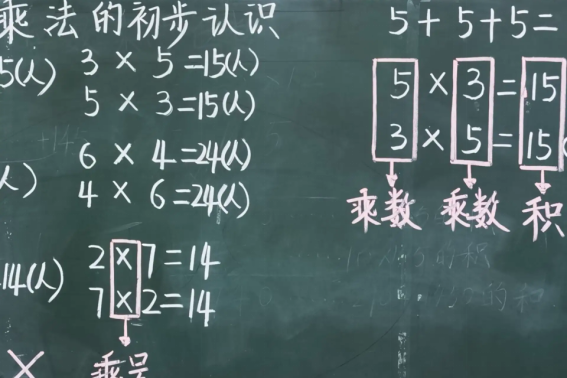 乘法的初步认识
5(人)
3 × 5=15(人)
5 × 3=15(人)
6 × 4=24(人)
人)
4 × 6=24(人)
14(人)
2×7=14
7×2=14
×
乘号
5+5+5=
5×3=15
3×5=15(
乘数 乘数 积